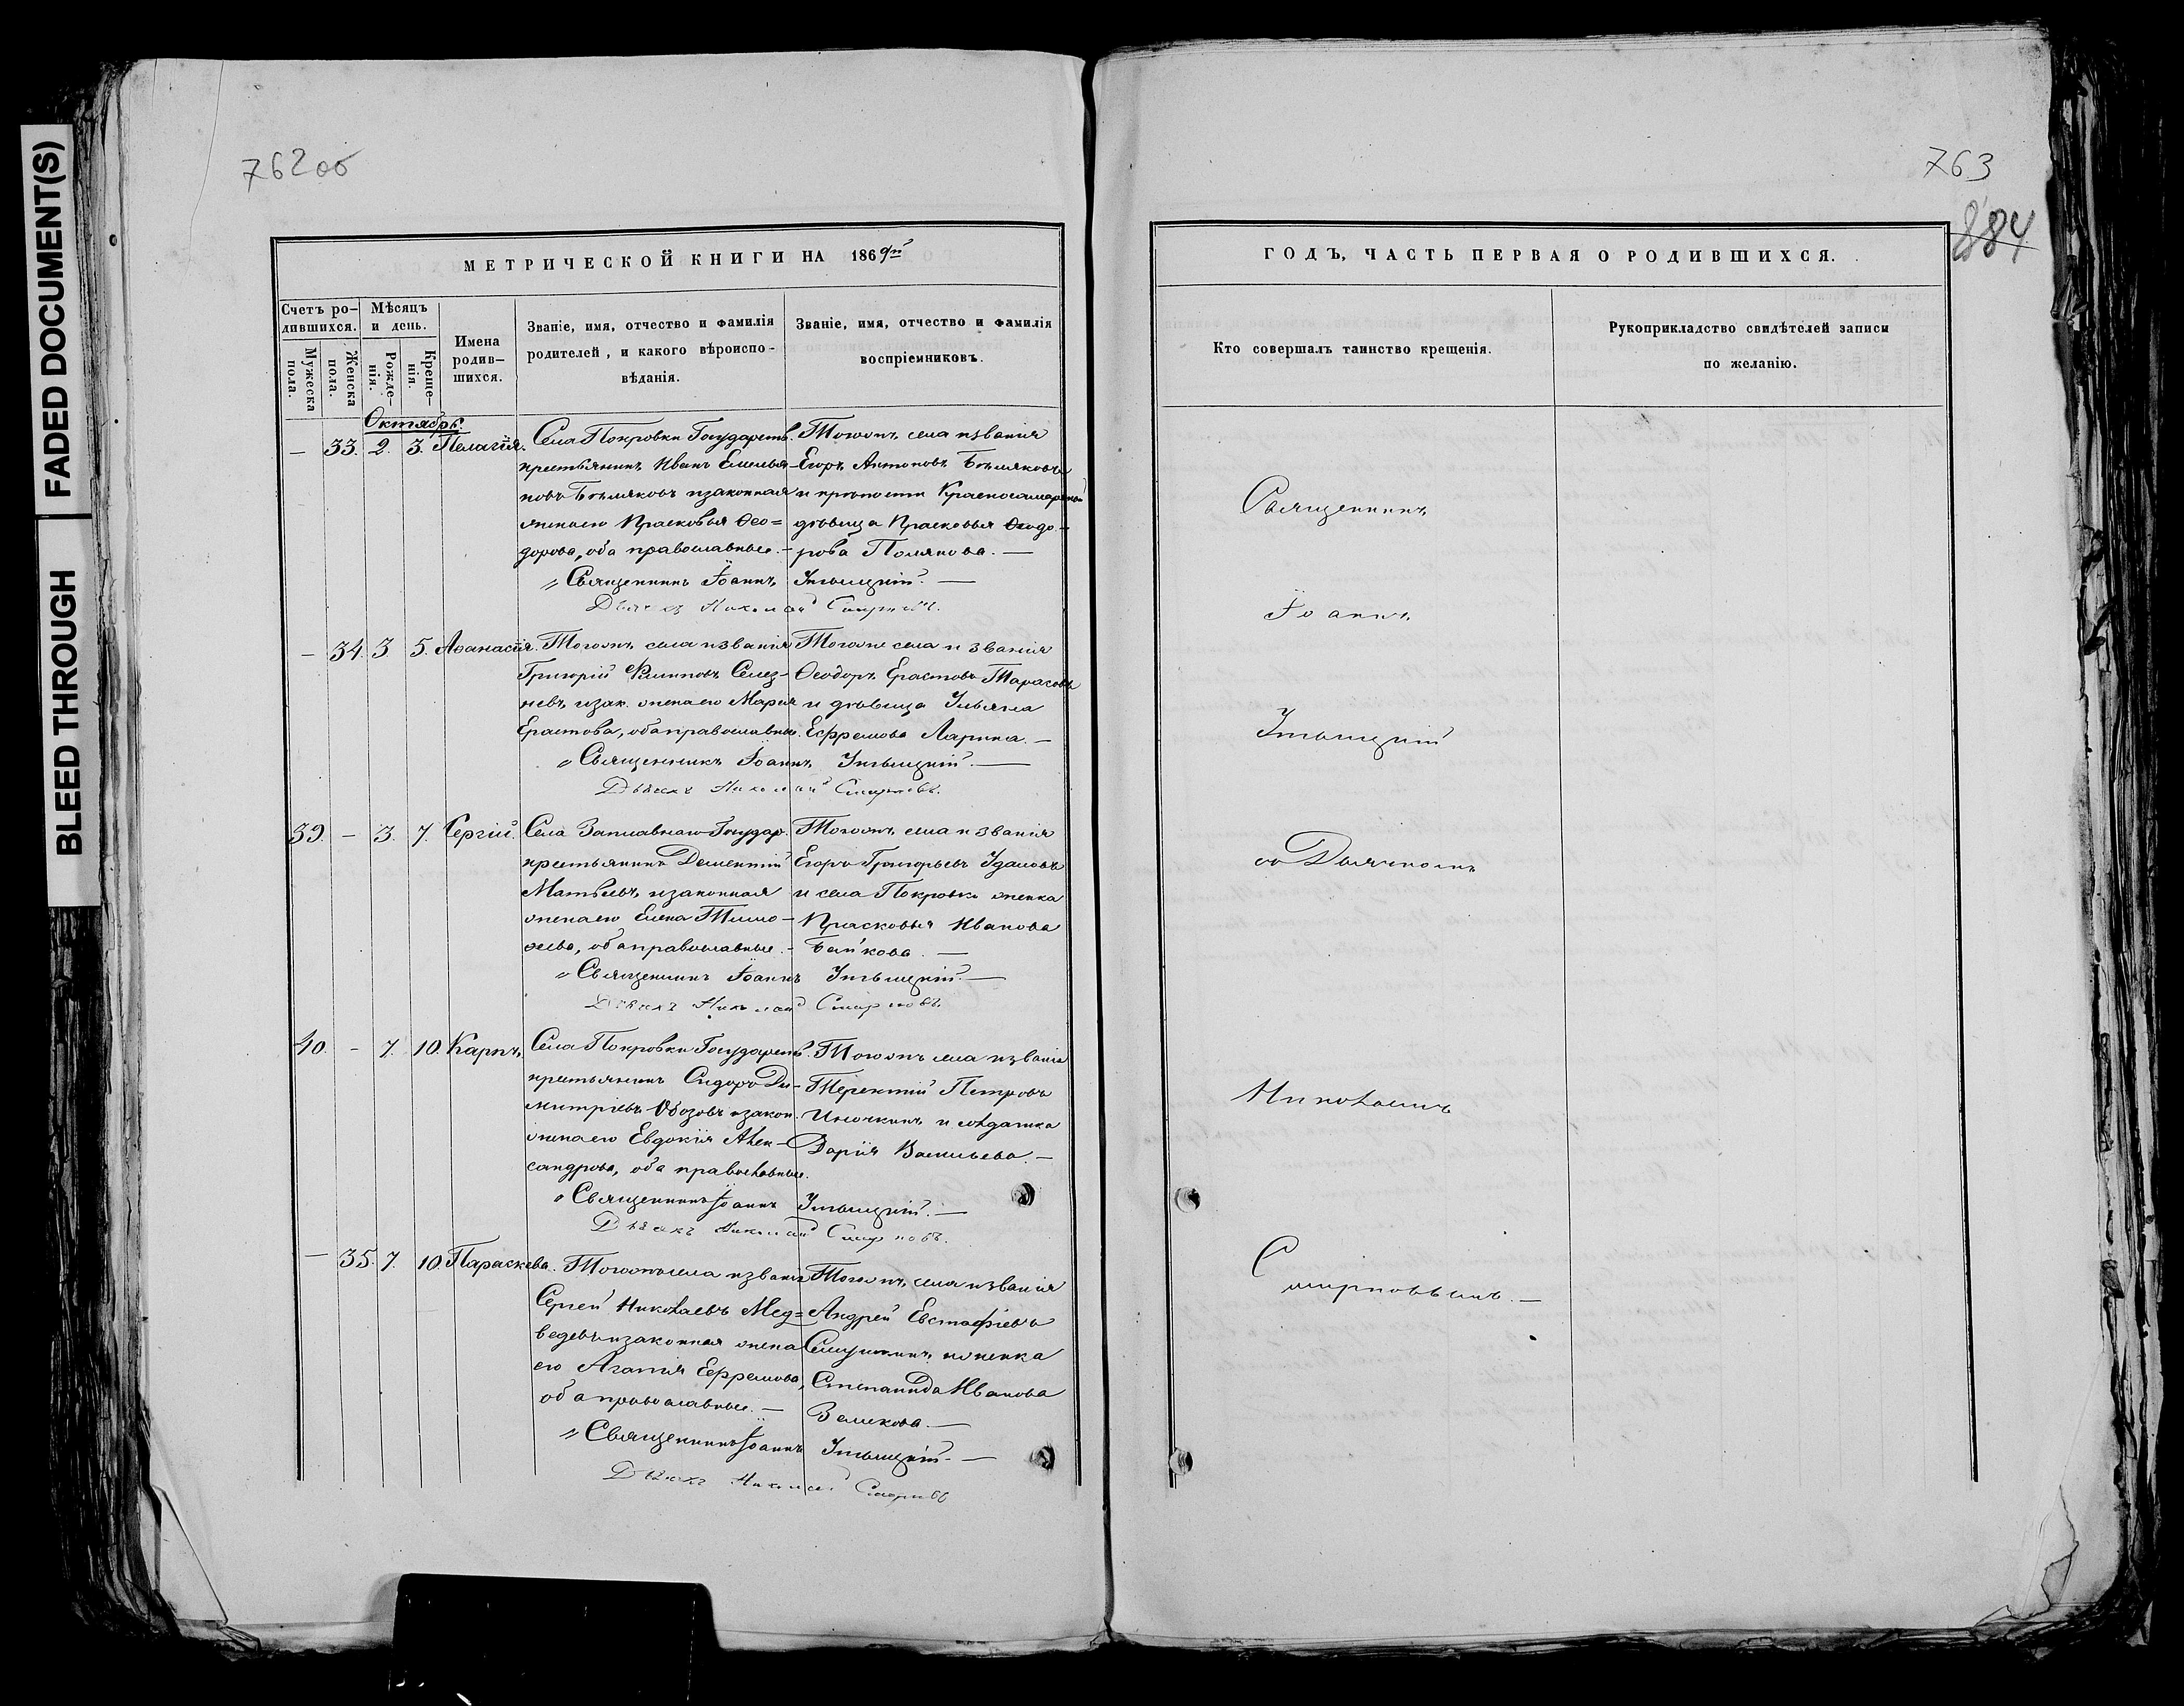 FADED DOCUMENT(S)
BLEED THROUGH
762 об
МЕТРИЧЕСКОЙ КНИГИ НА 1869й
Счетъ ро-
дившихся.
Мужеска
пола.
Женска
пола.
Мѣсяцъ
и день.
Рожде-
нія.
Креще-
нія.
Имена
родив-
шихся.
Званіе, имя, отчество и фамилія
родителей, и какого вѣроиспо-
вѣданія.
Званіе, имя, отчество и фамилія
воспріемниковъ.
Октябрь
— 33. 2. 3. Пелагія.
Села Покровки Государств.
крестьянинъ Иванъ Емелья-
новъ Бѣляковъ и законная
жена его Прасковья Ѳео=
дорова, оба православные. -
Тогожъ села и званія
Егоръ Антоновъ Бѣляковъ
и крѣпости Красносамарской
дѣвица Прасковья Ѳеодо-
рова Полякова. —
„Священникъ Іоаннъ
Дьячекъ Николай Смирновъ.
— 34. 3 5. Аѳанасія.
Тогожъ села и званія
Григорій Филиповъ Селез-
невъ и зак. жена его Марія
Ерастова, оба православные.
Тогоже села и званія
Ѳеодоръ Ерастовъ Тарасовъ
и дѣвица Ульяна
Ефремова Ларина. —
„Священникъ Іоаннъ
Дьячекъ Николай Смирновъ.
39. — 3. 7. Сергій.
Села Заплавнаго Государ.
крестьянинъ Дементій
Матвѣевъ, и законная
жена его Елена Тимо-
ѳеева, оба православные. -
Тогожъ села и званія
Егоръ Григорьевъ
и села Покровки женка
Прасковья Иванова
Байкова. —
„Священникъ Іоаннъ
Дьячекъ Николай Смирновъ.
40. - 7. 10. Карпъ.
Села Покровки Государств.
крестьянинъ Сидоръ Ди-
митріевъ Обозовъ и закон.
жена его Евдокія Алек-
сандрова, оба православные.
Тогожъ села и званія
Терентій Петровъ
Иночкинъ и солдатка
Дарія Васильева. —
„Священникъ Іоаннъ
Дьячекъ Николай Смирновъ.
— 35. 7. 10. Параскева.
Тогожъ села и званія
Сергей Николаевъ Мед=
ведевъ и законная жена
его Агапія Ефремова,
оба православные. —
Тогожъ села и званія
Андрей Евстафіевъ
и женка
Степанида Иванова
—
„Священникъ Іоаннъ
Дьячекъ Николай Смирновъ
763
884
ГОДЪ, ЧАСТЬ ПЕРВАЯ О РОДИВШИХСЯ.
Кто совершалъ таинство крещенія.
Рукоприкладство свидѣтелей записи
по желанію.
Священникъ
Іоаннъ
съ Дьячкомъ
Николаемъ
Смирновымъ. —